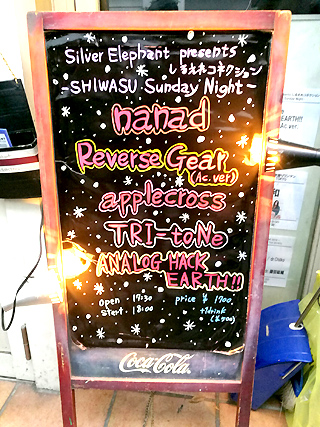 Silver Elephant presents
しるえれコネクション
-SHIWASU Sunday Night-
nanad
Reverse Gear
(Ac.ver)
applecross
TRI-toNe
ANALOG HACK
EARTH!!
open 17:30 price ¥1700
start 18:00 +1drink
(¥500)
Coca-Cola
EARTH!!
Ac.ver.